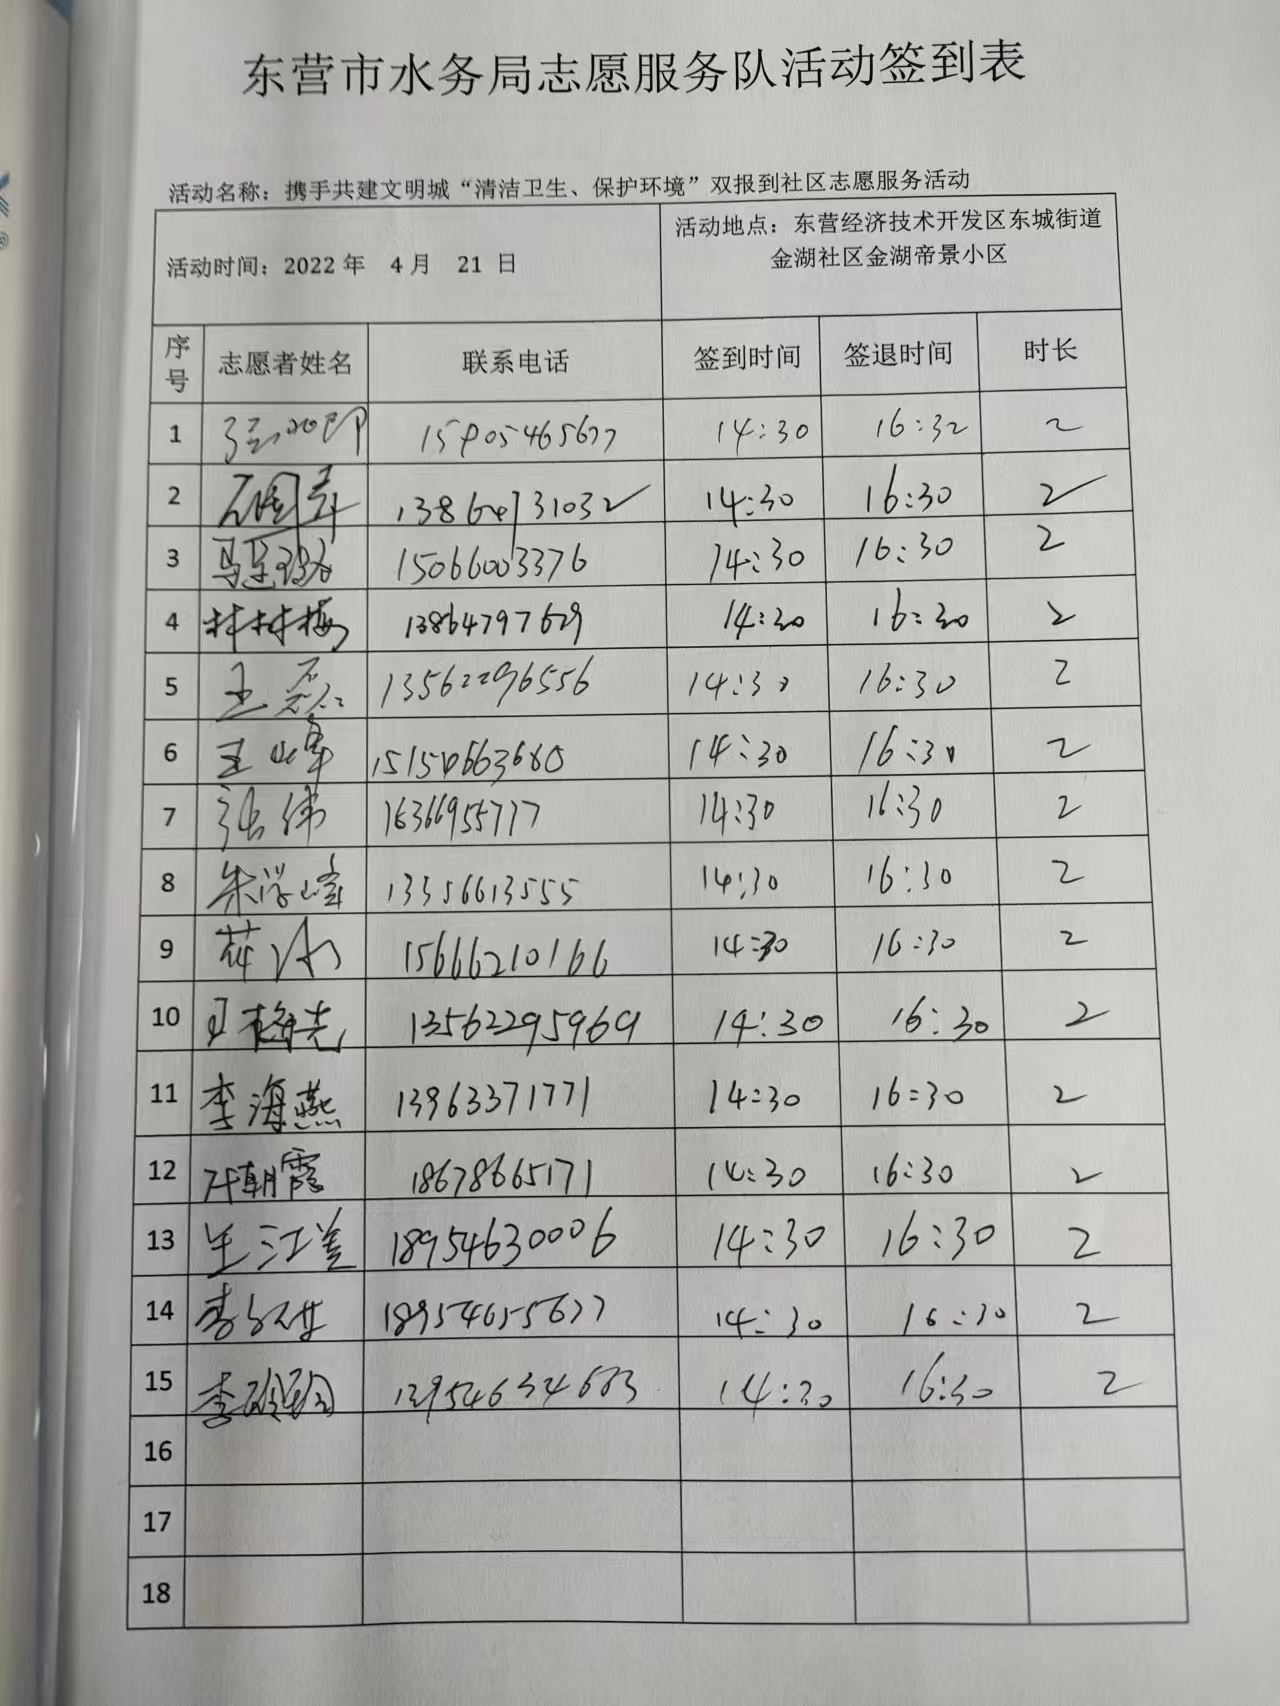 东营市水务局志愿服务队活动签到表
活动名称：携手共建文明城“清洁卫生、保护环境”双报到社区志愿服务活动
活动时间：2022 年 4 月 21 日
活动地点：东营经济技术开发区东城街道
金湖社区金湖帝景小区
序号 志愿者姓名 联系电话 签到时间 签退时间 时长
1 15905465677 14:30 16:32 2
2 13864731032 14:30 16:30 2
3 15066003376 14:30 16:30 2
4 林树梅 13864797629 14:30 16:30 2
5 王磊 13562296556 14:30 16:30 2
6 王峰 14:30 16:30 2
7 张伟 14:30 16:30 2
8 朱学峰 13356613555 14:30 16:30 2
9 15666210166 14:30 16:30 2
10 13562295969 14:30 16:30 2
11 李海燕 13963371771 14:30 16:30 2
12 朝霞 18678665171 14:30 16:30 2
13 18954630006 14:30 16:30 2
14 李 18954655677 14:30 16:30 2
15 李 13954634683 14:30 16:30 2
16
17
18